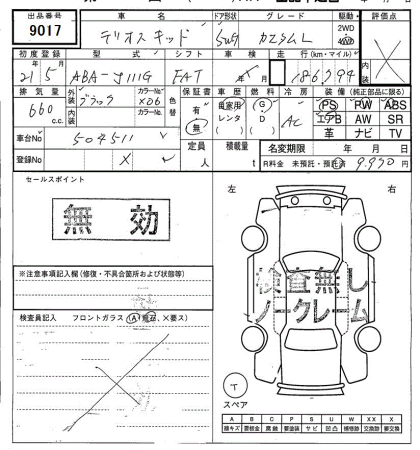 出品番号 車名 ドア形状 グレード 駆動 評価点
9017 テリオスキッド 5W カスタムL 2WD 4WD
初度登録 型式 シフト 車検 走行(km・マイル)
21年5月 ABA-J111G FAT 年 月 186794
排気量 外装 ブラック カラーNo X06 色替 保証書 車歴 燃料 冷房 装備(純正部品に限る)
660c.c. 内装 カラーNo 有 無 自家用 レンタ ( ) G D ( ) AC PS PW ABS
エアB AW SR
革 ナビ TV
車台No 504511 定員 人 積載量 t 名変期限 年 月 日
登録No X R料金 未預託・預託済 9,930円
セールスポイント 左 右
無効
検査無し
ノークレーム
※注意事項記入欄(修復・不具合箇所および状態等)
検査員記入 フロントガラス(A・飛石、×要ス)
T
スペア
A B C P S U W X XX
線キズ 要板金 腐食 要塗装 サビ 凹凸 補修跡 交換跡 要交換